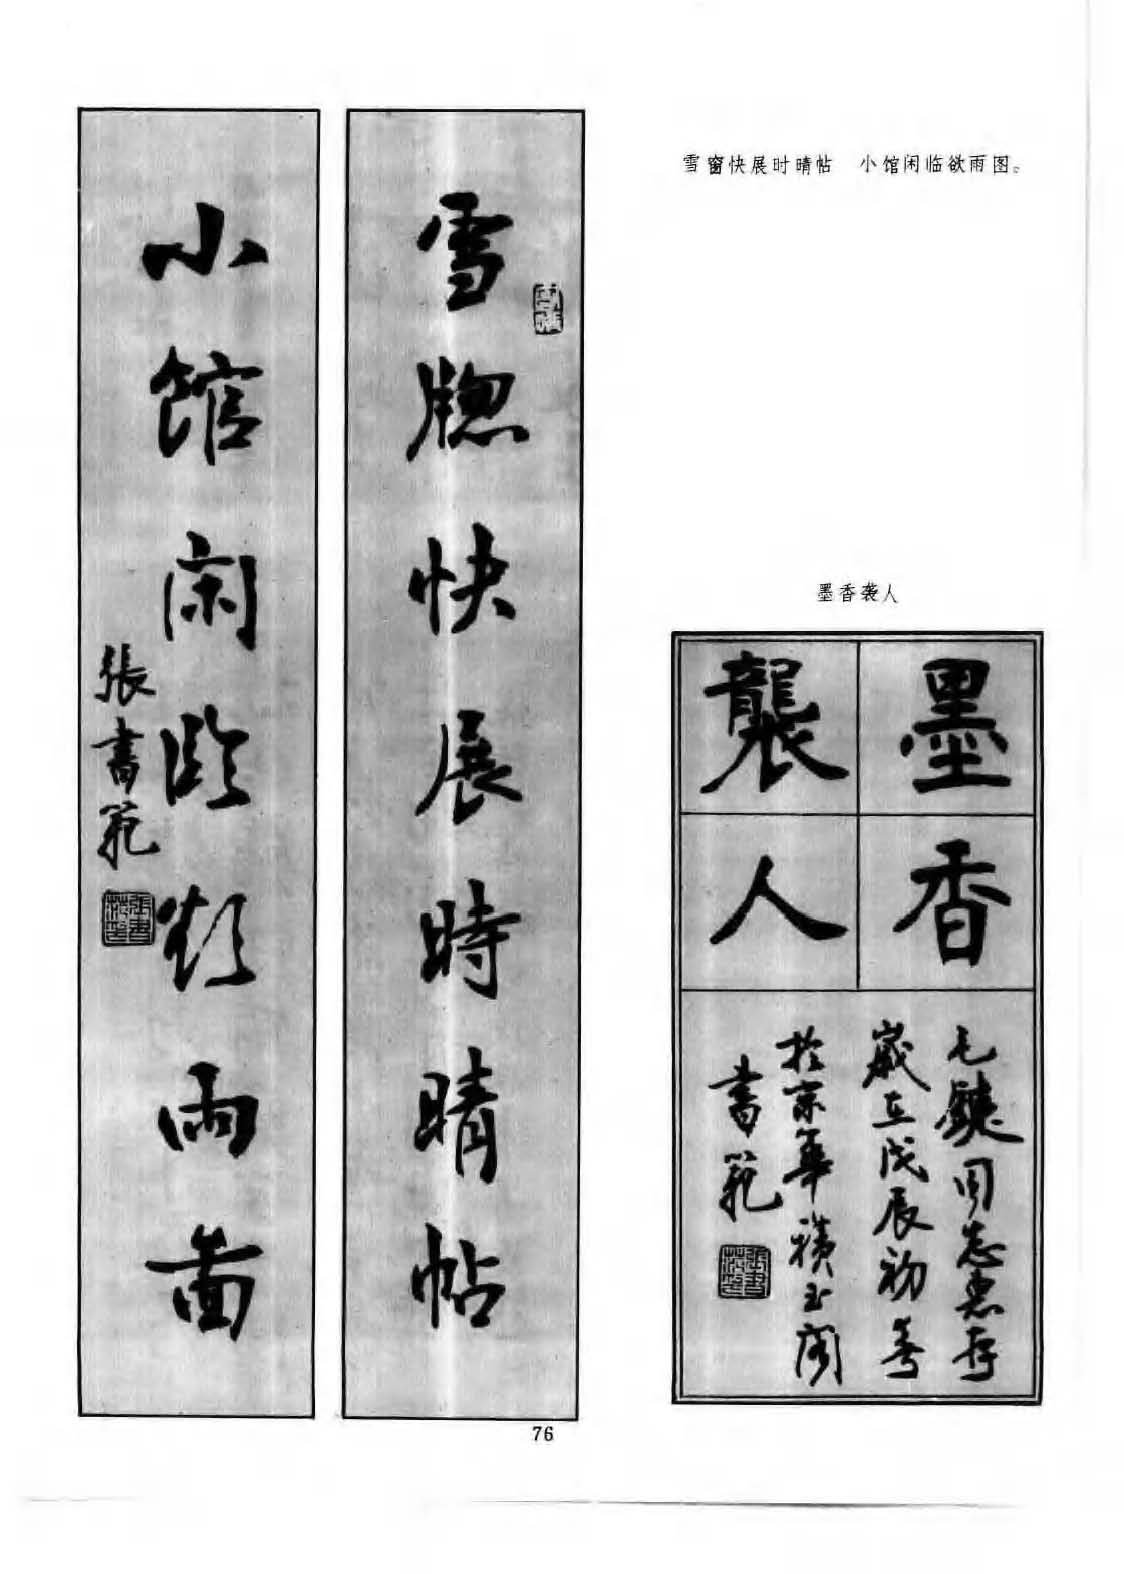 雪窗快展时晴帖 小馆闲临欲雨图。
雪牕快展時晴帖
小館閑臨欲雨圖
張書範
張書範
墨香襲人
墨香
襲人
同志惠存
歲在戊辰初春
於京華積玉閣
書範
76